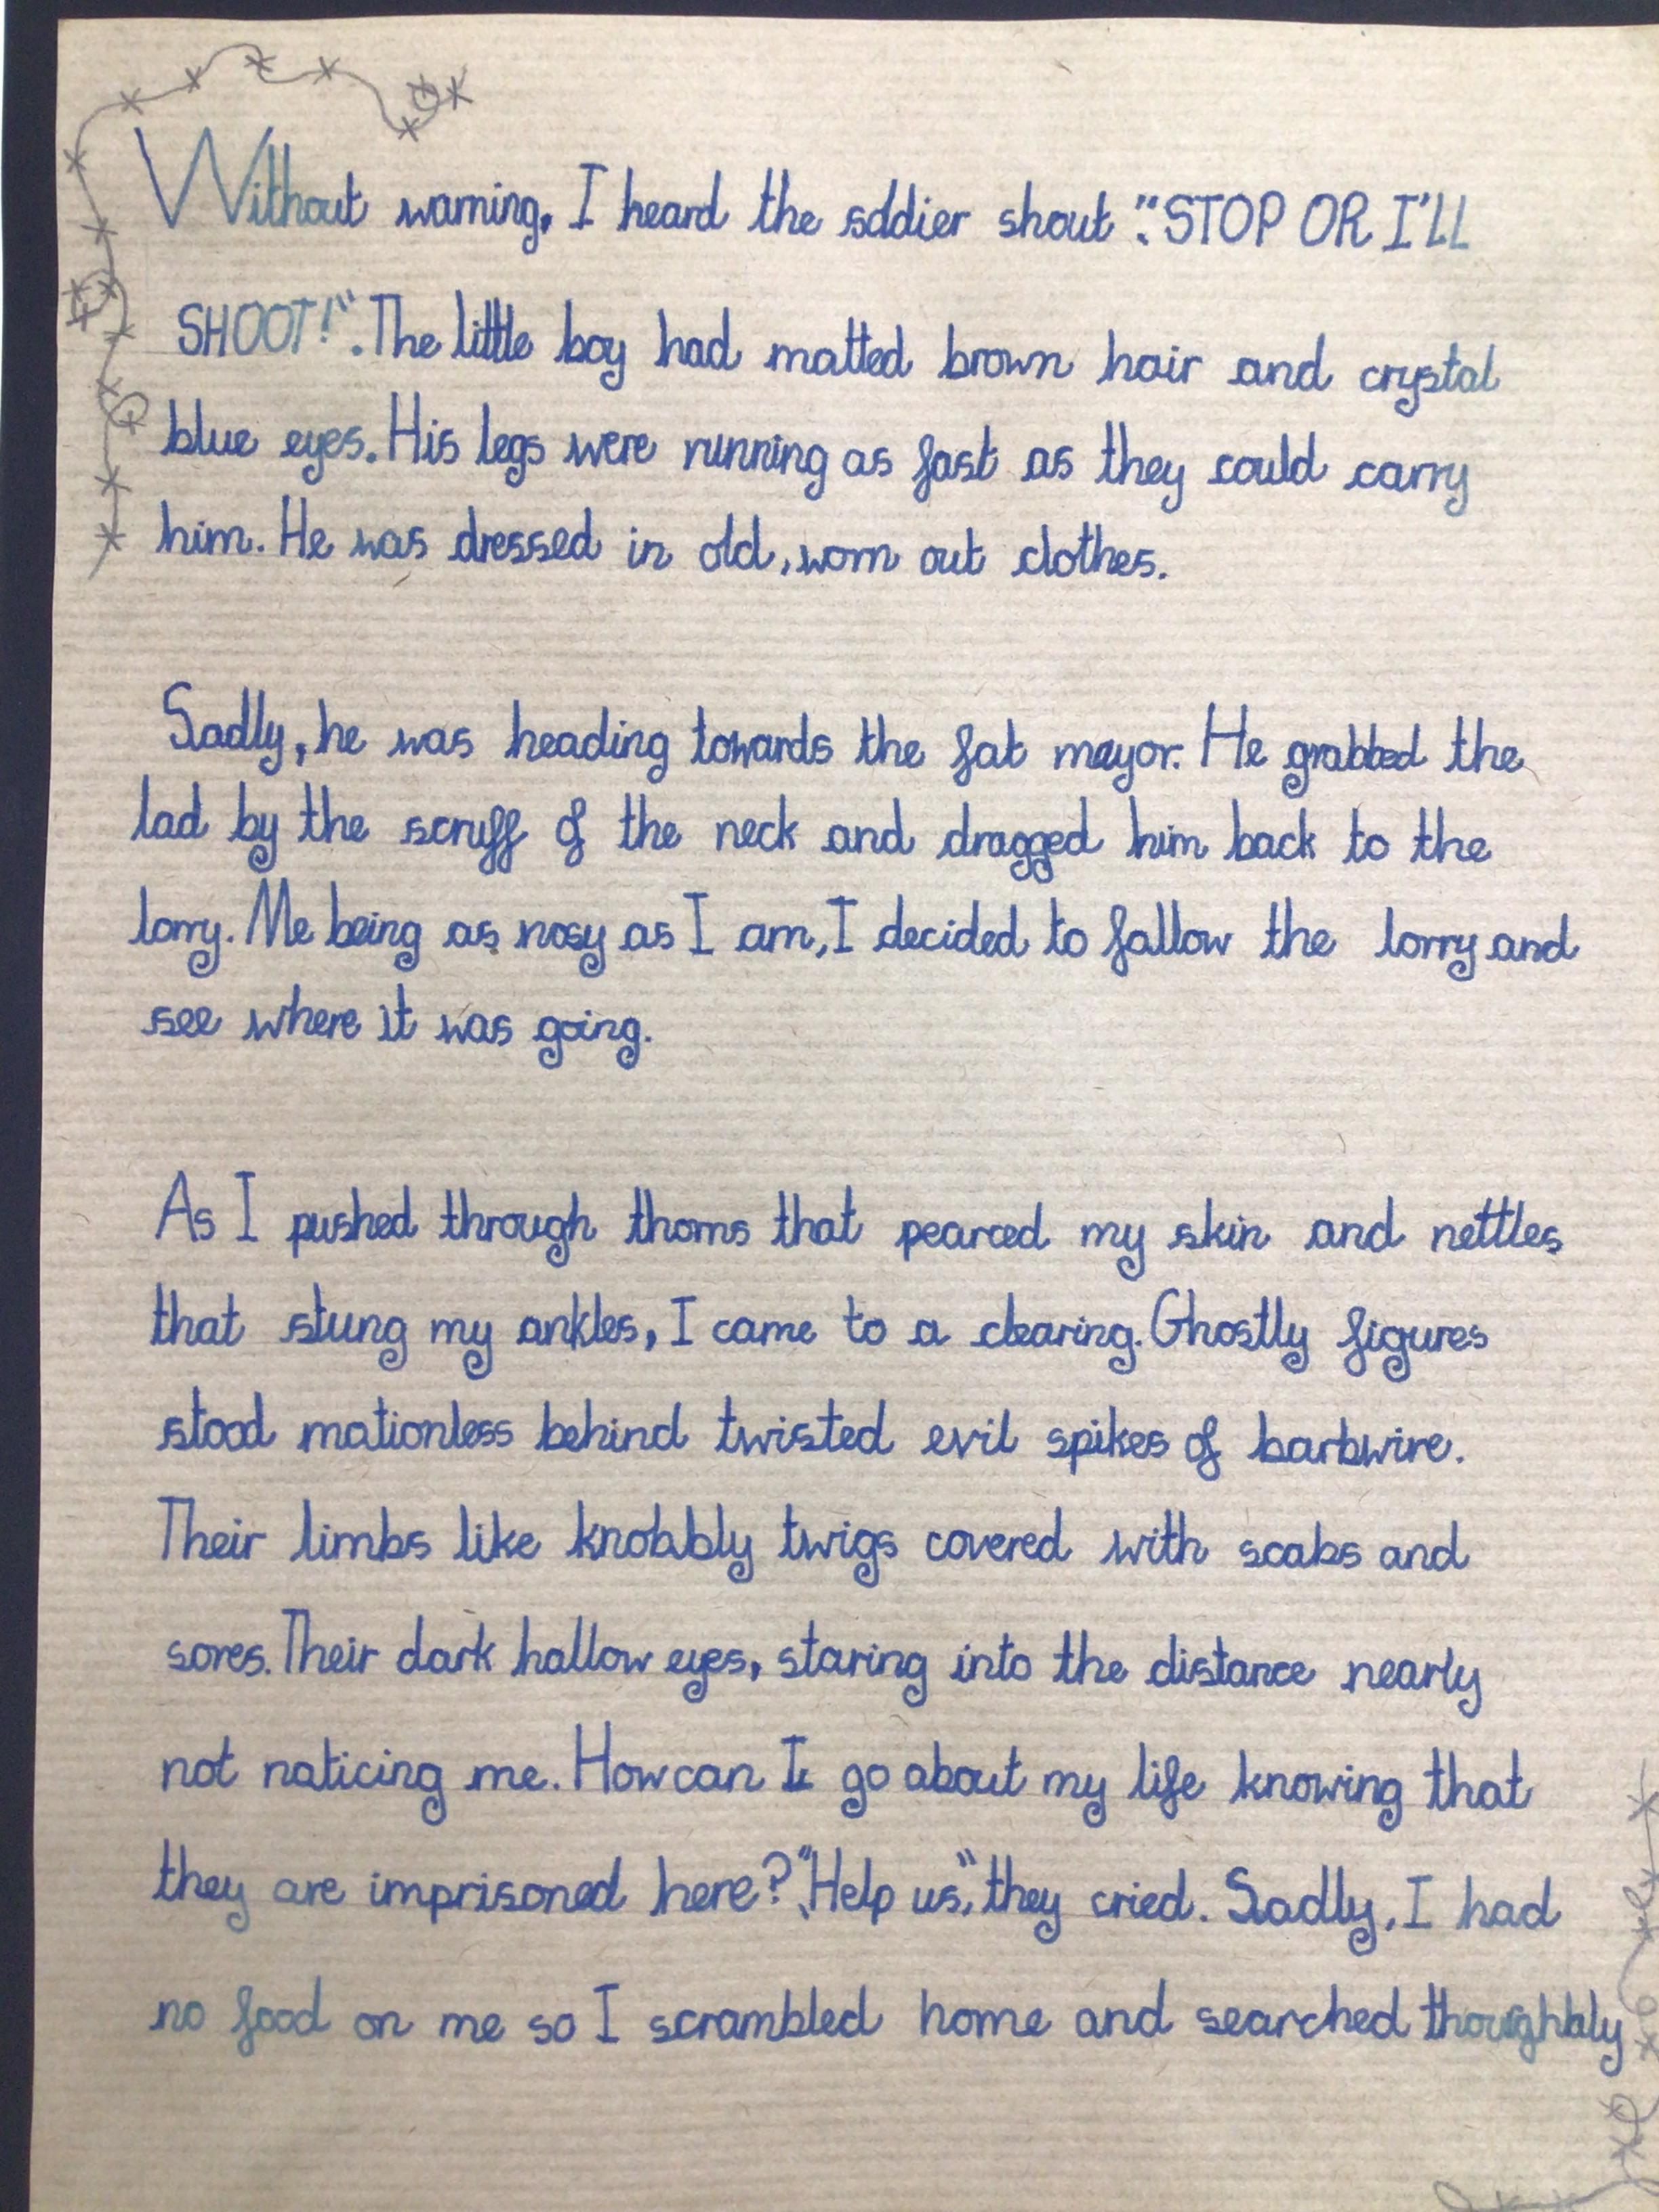 Without warning, I heard the soldier shout :"STOP OR I'LL
SHOOT!". The little boy had matted brown hair and crystal
blue eyes. His legs were running as fast as they could carry
him. He was dressed in old, worn out clothes.
Sadly, he was heading towards the fat mayor. He grabbed the
lad by the scruff of the neck and dragged him back to the
lorry. Me being as nosy as I am, I decided to follow the lorry and
see where it was going.
As I pushed through thorns that pearced my skin and nettles
that stung my ankles, I came to a clearing. Ghostly figures
stood motionless behind twisted evil spikes of barbwire.
Their limbs like knobbly twigs covered with scabs and
sores. Their dark hollow eyes, staring into the distance nearly
not noticing me. How can I go about my life knowing that
they are imprisoned here? "Help us," they cried. Sadly, I had
no food on me so I scrambled home and searched